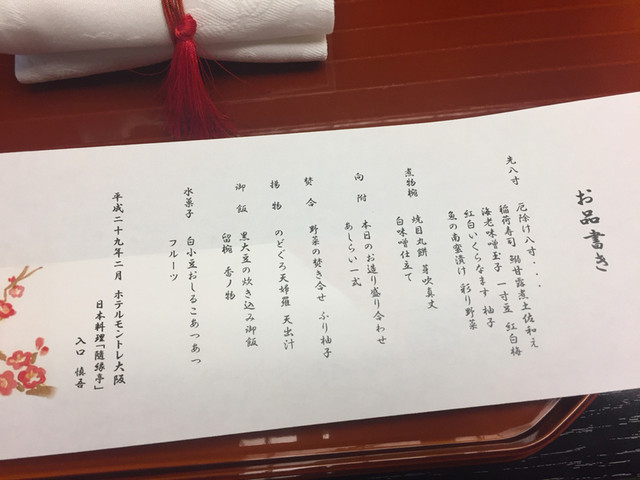 お品書き
先八寸 厄除け八寸・・・
稲荷寿司 鰯甘露煮土佐和え
海老味噌玉子 一寸豆 紅白梅
紅白いくらなます 柚子
魚の南蛮漬け 彩り野菜
煮物椀 焼目丸餅 芽吹真丈
白味噌仕立て
向附 本日のお造り盛り合わせ
あしらい一式
焚合 野菜の焚き合せ ふり柚子
揚物 のどぐろ天婦羅 天出汁
御飯 黒大豆の炊き込み御飯
留椀 香ノ物
水菓子 白小豆おしるこあつあつ
フルーツ
平成二十九年二月 ホテルモントレ大阪
日本料理「隨縁亭」
入口 慎吾